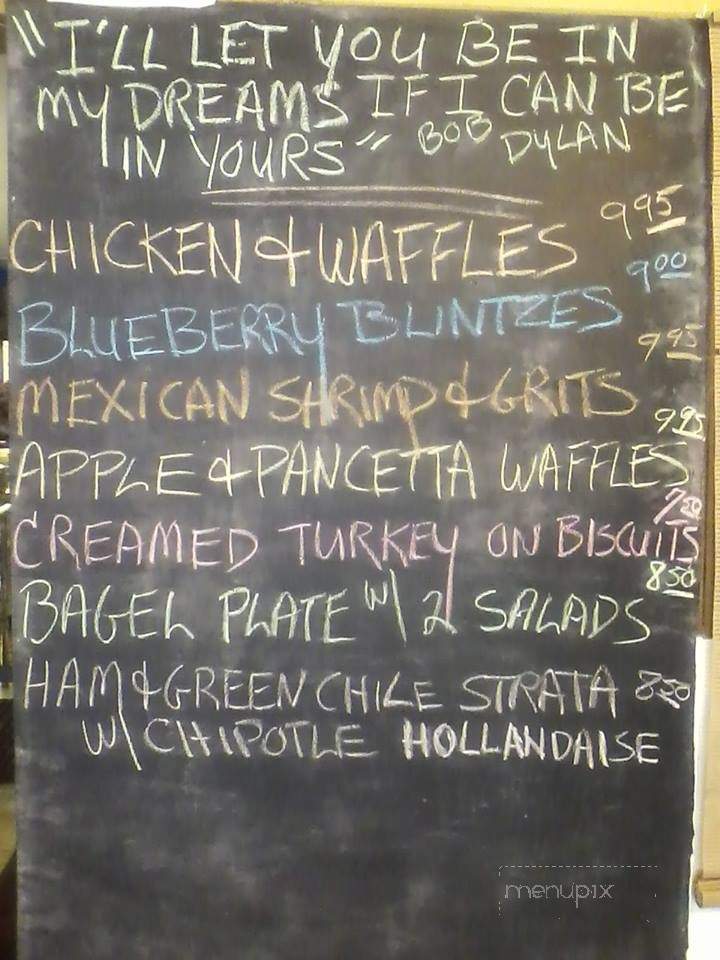 "I'LL LET YOU BE IN
MY DREAMS IF I CAN BE
IN YOURS" BOB DYLAN
CHICKEN & WAFFLES 9.95
BLUEBERRY BLINTZES 9.00
MEXICAN SHRIMP & GRITS 9.95
APPLE & PANCETTA WAFFLES 9.95
CREAMED TURKEY ON BISCUITS 7.50
BAGEL PLATE W/ 2 SALADS 8.50
HAM & GREEN CHILE STRATA 8.50
W/ CHIPOTLE HOLLANDAISE
menupix